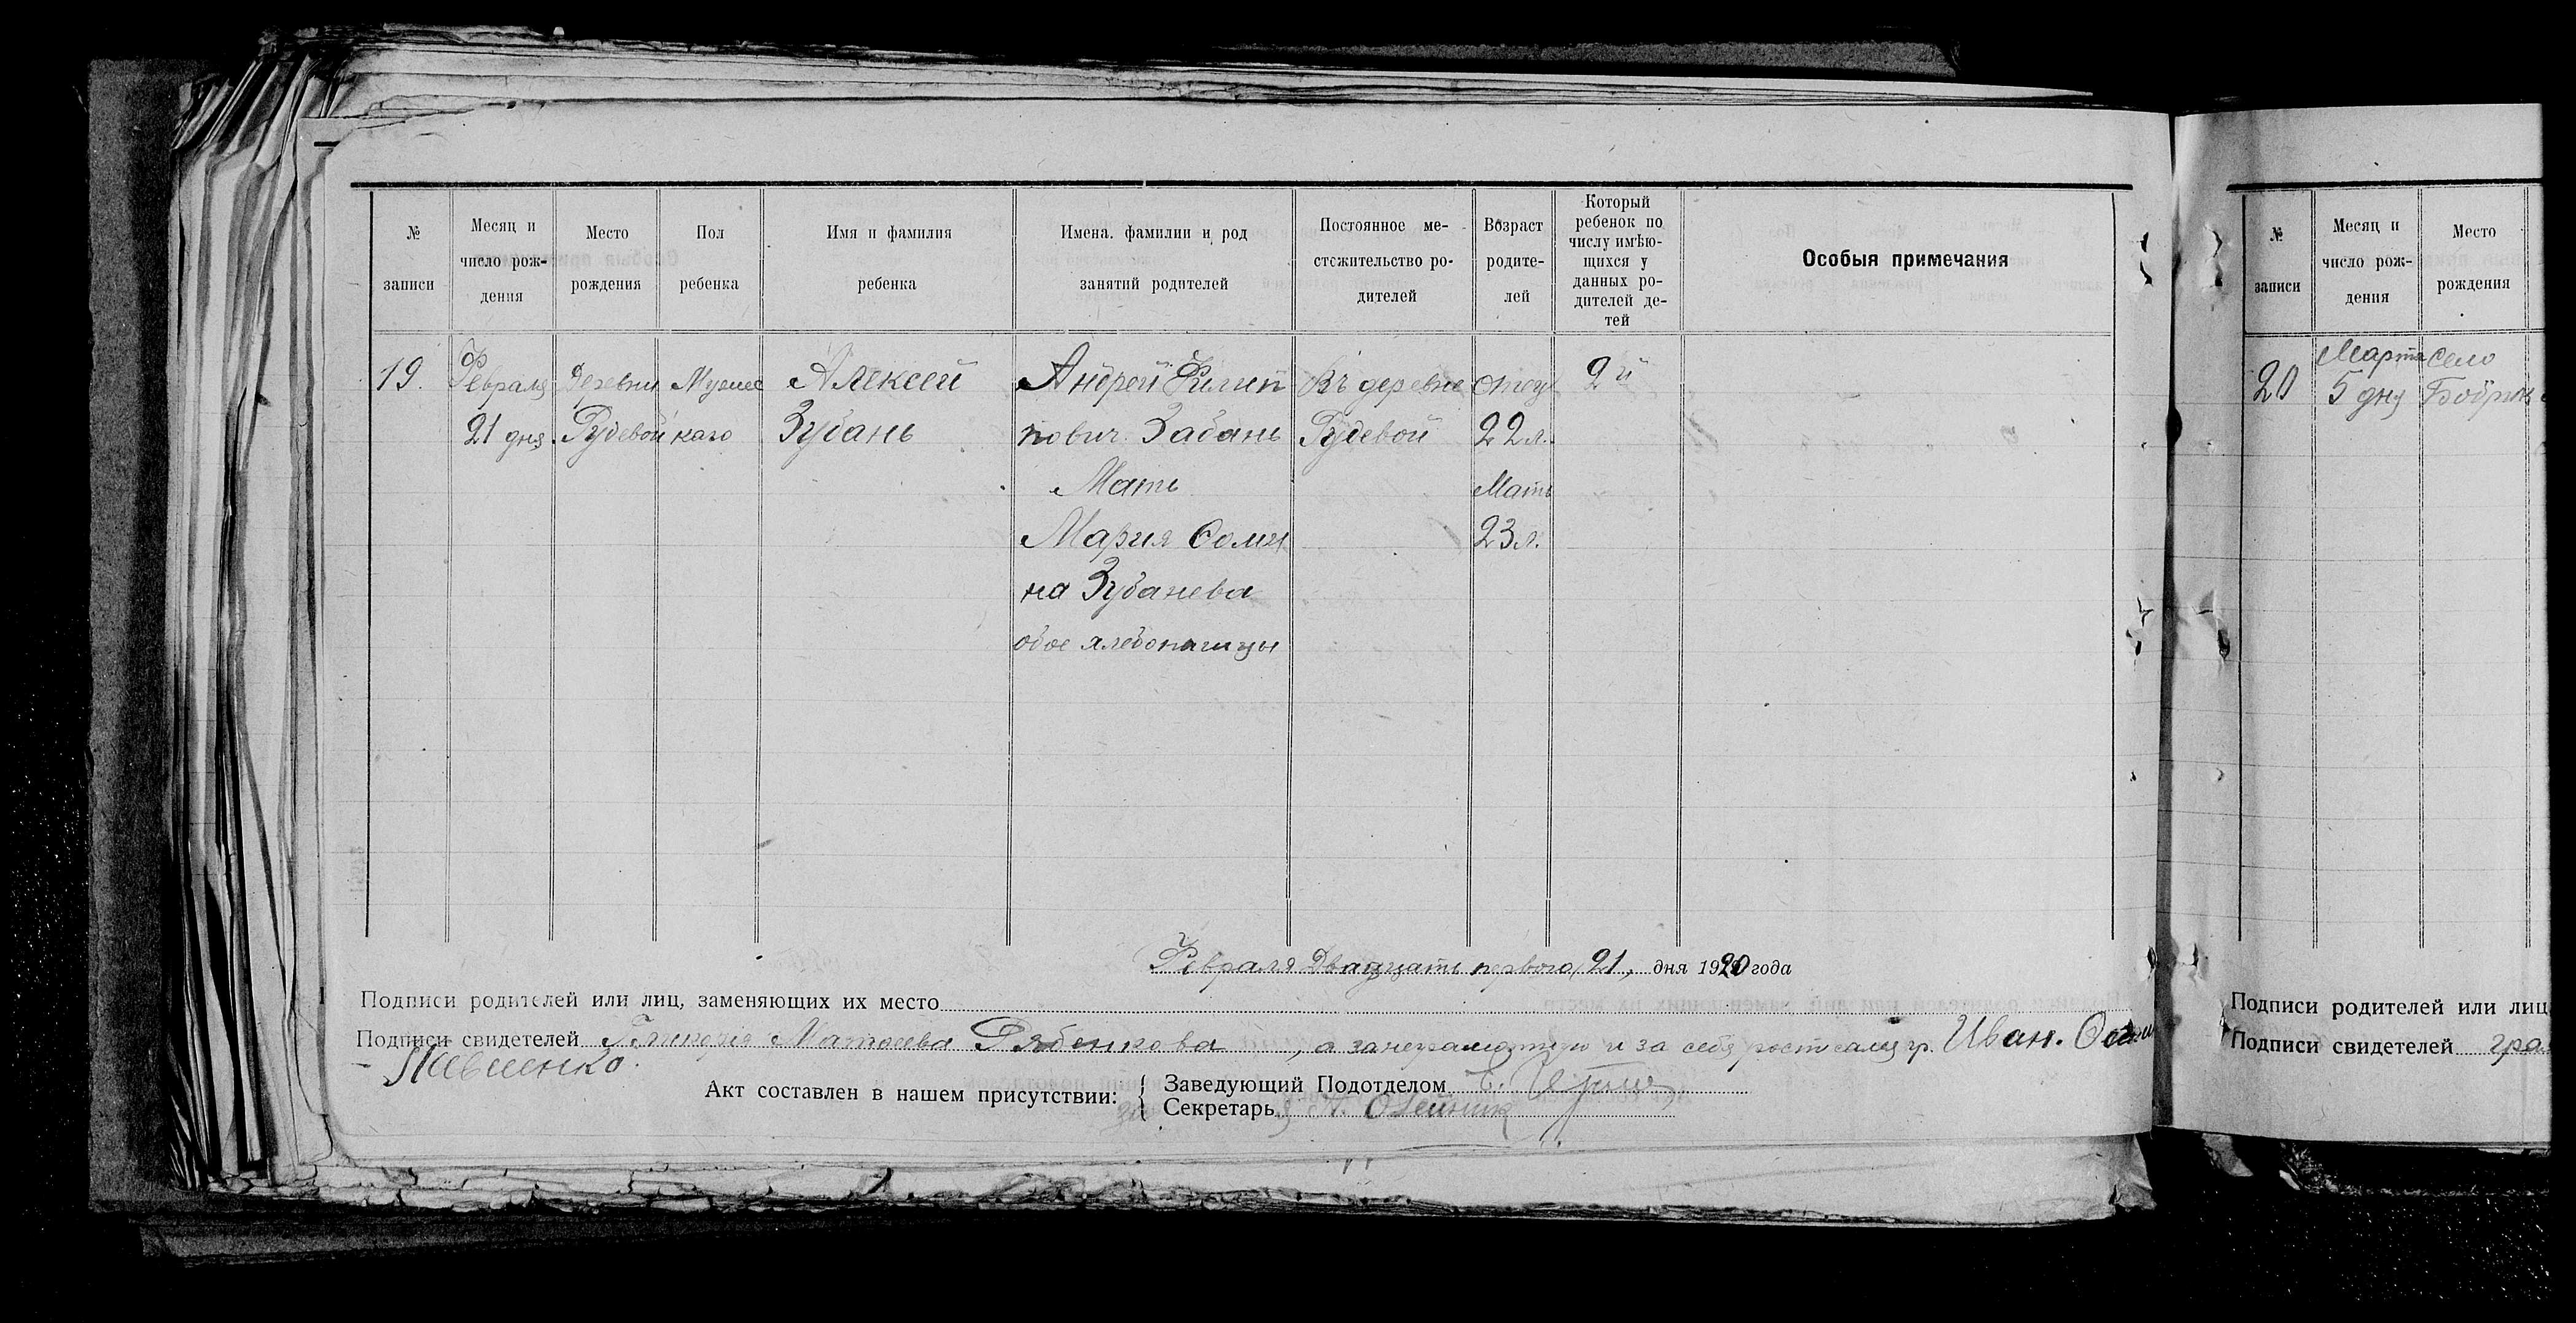 № записи
Месяц и число рождения
Место рождения
Пол ребенка
Имя и фамилия ребенка
Имена, фамилии и род занятий родителей
Постоянное местожительство родителей
Возраст родителей
Который ребенок по числу имѣющихся у данных родителей детей
Особыя примечания
19.
Февраля
21 дня.
Деревни
Рудевой
Мужес
каго
Алексей
Зубань
Андрей Филип
пович. Забань
Мать
Мария Фоми
на Зубанева
обое хлебопашцы
Въ деревне
Рудевой
отец
22 л.
Мать
23 л.
2й
Февраля Двадцать первого 21, дня 1920 года
Подписи родителей или лиц, заменяющих их место
Подписи свидетелей Григорія Матвеева Рябенкова, а за неграмотную и за себя гр. Иван.
Павленко.
Акт составлен в нашем присутствии:
Заведующий Подотделом
Секретарь Олейник
№ записи
Месяц и число рождения
Место рождения
20
Марта
5 дня
Село
Подписи родителей или лиц
Подписи свидетелей гра